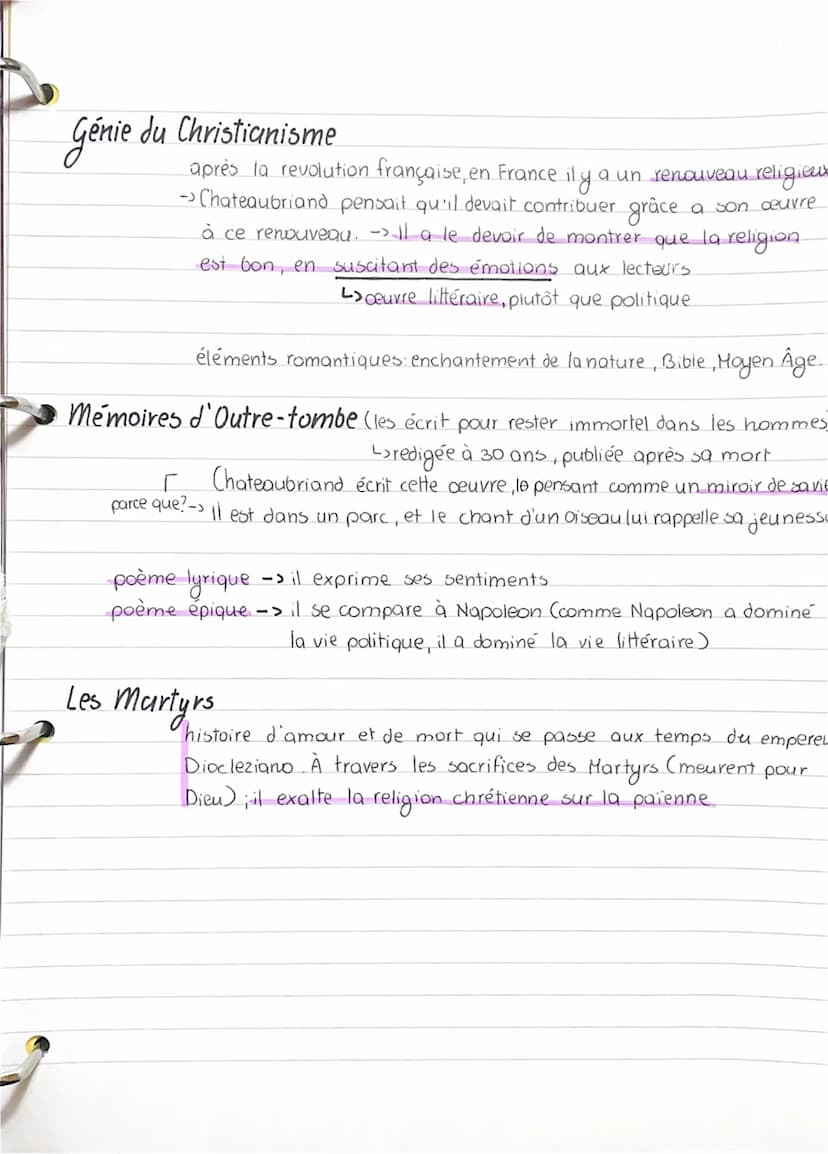 Génie du Christianisme
après la revolution française, en France il y a un renouveau religieux
-> Chateaubriand pensait qu'il devait contribuer grâce a son œuvre
à ce renouveau. -> Il a le devoir de montrer que la religion
est bon, en suscitant des émotions aux lecteurs
↳ œuvre littéraire, plutôt que politique
éléments romantiques: enchantement de la nature, Bible, Moyen Âge.
Mémoires d'Outre-tombe (les écrit pour rester immortel dans les hommes)
↳ redigée à 30 ans, publiée après sa mort
Chateaubriand écrit cette œuvre, le pensant comme un miroir de sa vie
parce que? -> Il est dans un parc, et le chant d'un oiseau lui rappelle sa jeunesse
poème lyrique -> il exprime ses sentiments
poème épique -> il se compare à Napoleon (comme Napoleon a dominé
la vie politique, il a dominé la vie littéraire)
Les Martyrs
histoire d'amour et de mort qui se passe aux temps du empereu
Diocleziano. À travers les sacrifices des Martyrs (meurent pour
Dieu) ; il exalte la religion chrétienne sur la païenne